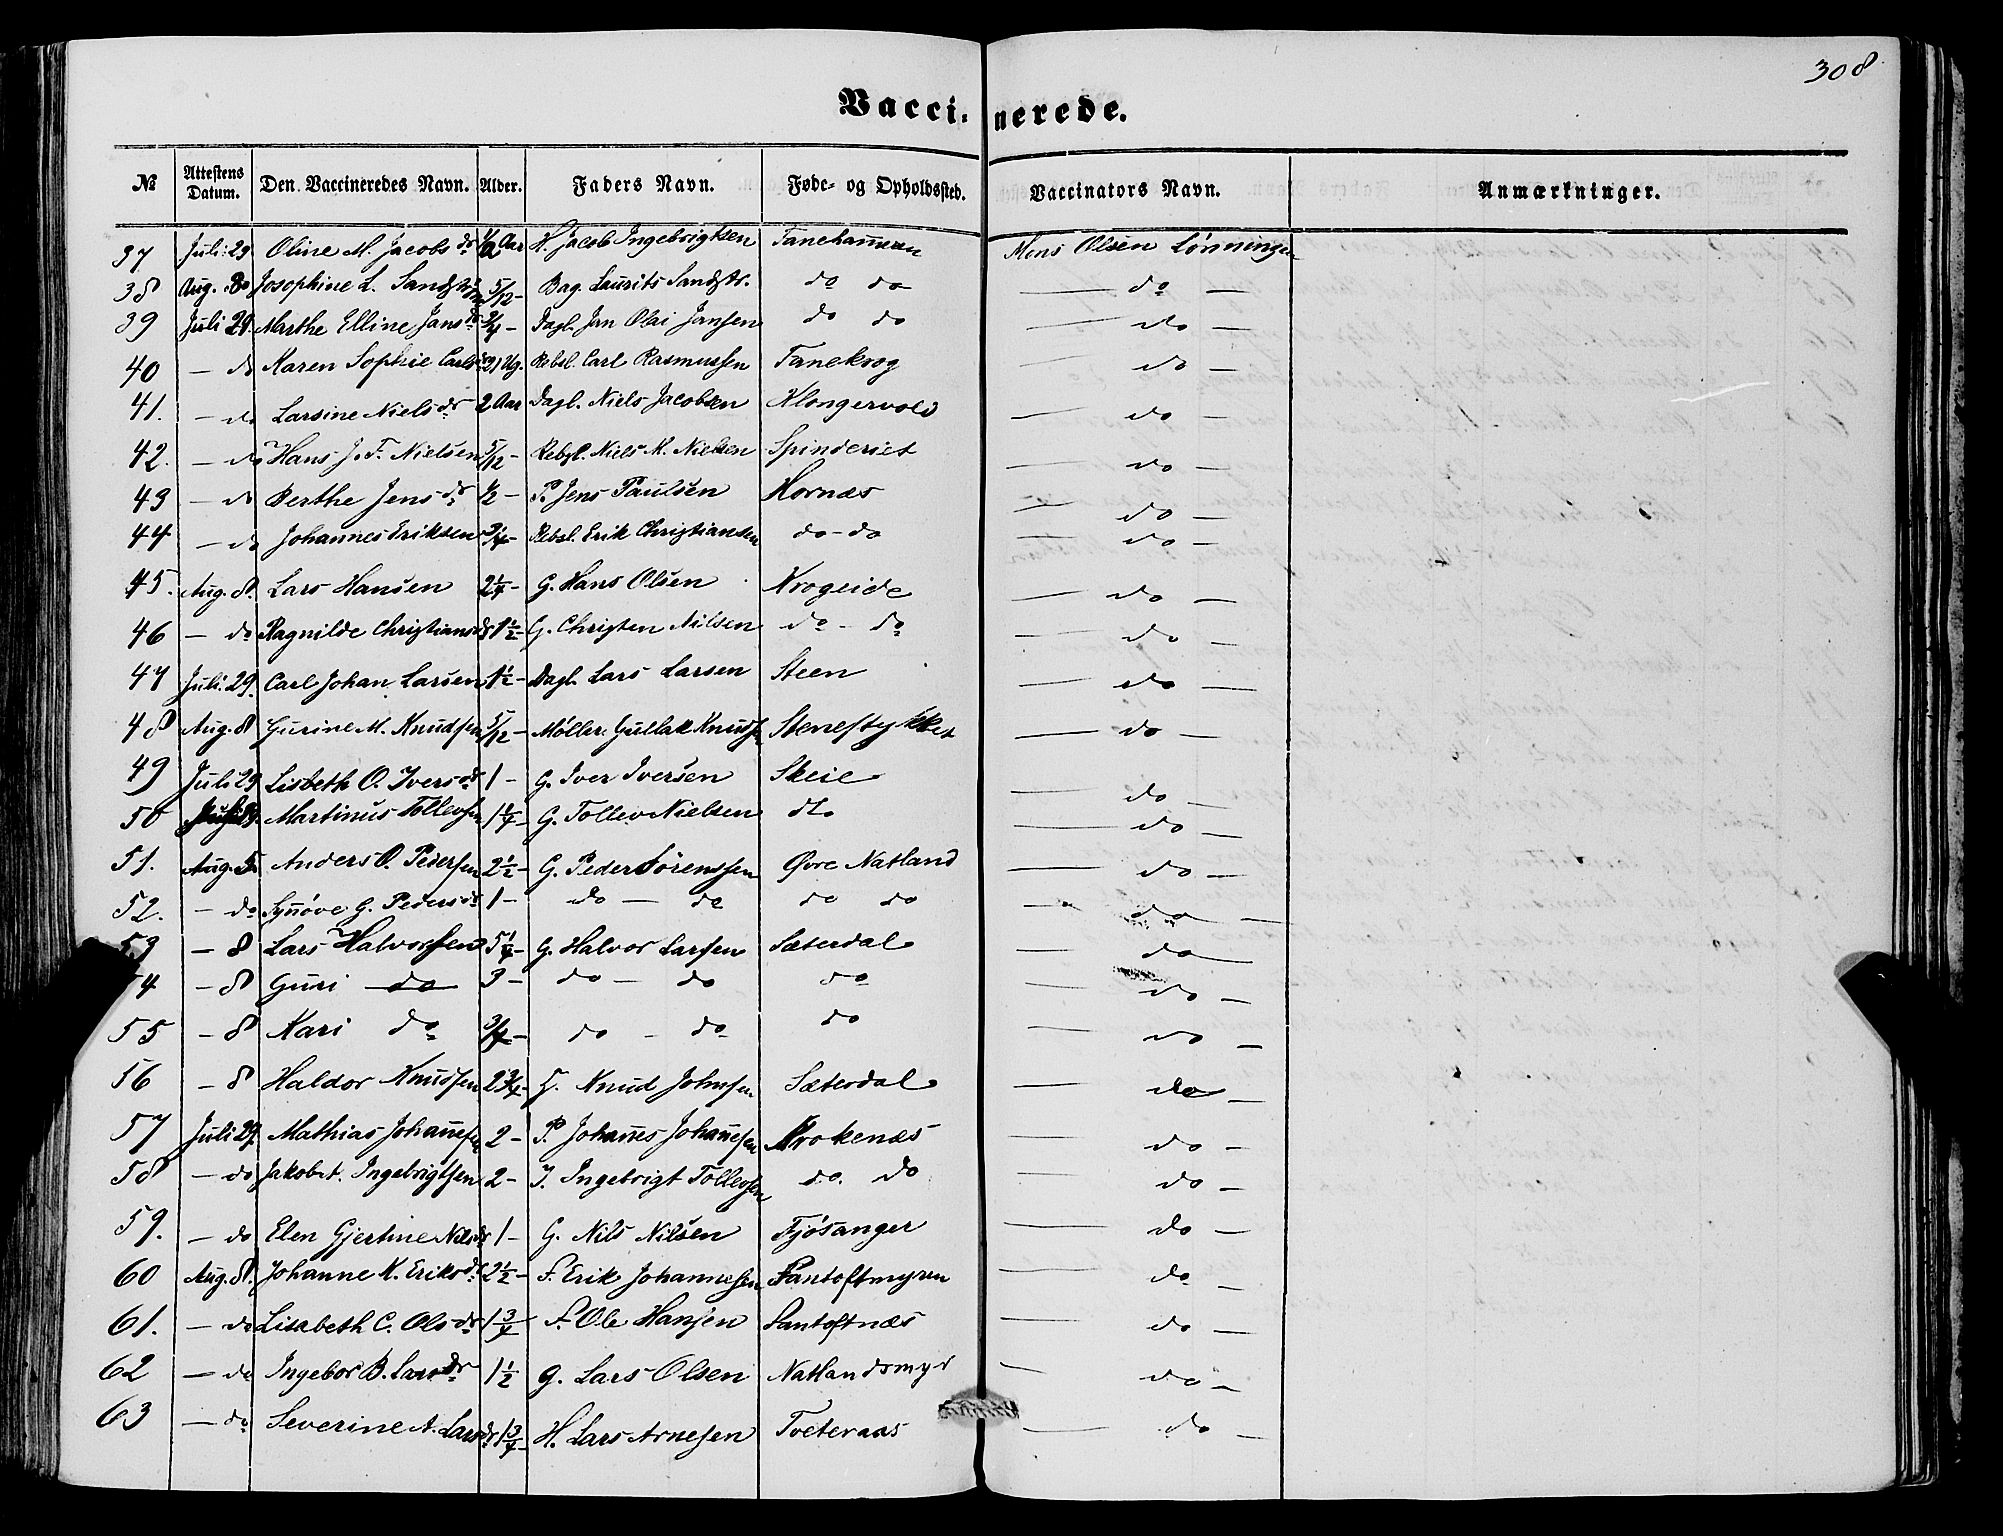 308
Vaccinerede.
№ Attestens Datum. Den Vaccineredes Navn. Alder. Faders Navn. Føde- og Opholdssted. Vaccinators Navn. Anmærkninger.
37 Juli 29 Oline M. Jacobsdr 1/2 Aar H. Jacob Ingebrigtsen Mons Olsen Lønningen
38 Aug. 8 Josephine L. 5/12 - Bag. Laurits Sandstr. do do — do —
39 Juli 29. Marthe Elline Jansdr 3/4 - Dagl. Jan Olai Jansen do do — do —
40 — do Karen Sophie 21 Ug. Rebsl. Carl Rasmussen Tanekrog — do —
41. — do Larsine Nielsdr 2 Aar Dagl. Niels Jacobsen Klongervold — do —
42. — do Hans J. F. Nielsen 5/12 - Rebsl. Niels M. Nielsen Spinderiet — do —
43 — do Berthe Jensdr 1/2 - P. Jens Paulsen Hornæs — do —
44 — do Johannes Eriksen 3/4 - Rebsl. Erik Christiansen do - do — do —
45. Aug. 8. Lars Hansen 2 1/4 - G. Hans Olsen Krogeide — do —
46 — do Ragnilde Christiansdr 1 1/2 - G. Christen Nilsen do - do — do —
47 Juli 29. Carl Johan Larsen 1 1/2 - Dagl. Lars Larsen Steen — do —
48 Aug. 8 Gurine M. Knudsen 5/12 - Møller Gullak Knudsen Stenestykket — do —
49 Juli 29 Lisbeth O. Iversdr 1 - G. Iver Iversen Skeie — do —
50 Martinus Tollevsen 1 1/4 - G. Tollev Nielsen do — do —
51. Aug. 8. Anders O. Pedersen 2 1/2 - G. Peder Sørenssen Øvre Natland — do —
52. — do Synnøve G. Pedersdr 1 - do — do do do — do —
53 — 8 Lars Halvorsen 5 1/4 - G. Halvor Larsen Sæterdal — do —
54 — 8 Guri do 3 - do — do do — do —
55 — 8 Kari do 3/4 - do - do do — do —
56 — 8 Haldor Knudsen 2 3/4 - Knud Johnsen Sæterdal — do —
57 Juli 29. Mathias Johannesen 2 - P. Johannes Johannesen Krokenæs — do —
58 — do Jakob t. Ingebrigtsen 2 - I. Ingebrigt Tollevsen do. do — do —
59. — do Elen Gjertine Nilsdr 1 - G. Nils Nilsen Fjøsanger — do —
60 Aug. 8. Johanne K. Eriksdr 2 1/2 - F. Erik Johannesen Fantoftmyren — do —
61. — do Lisabeth C. Olsdr 1 3/4 F. Ole Hansen Fantoftnæs — do —
62 — do Ingebor B. Larsdr 1 1/2 G. Lars Olsen Natlandsmyr — do —
63 — do Severine A. Larsdr 1 3/4 - H. Lars Arnesen Tveteraas — do —